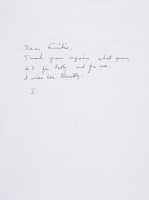 Dear Emilio,
Thank you again what you
did for Kelly and for me.
I miss her terribly.
S